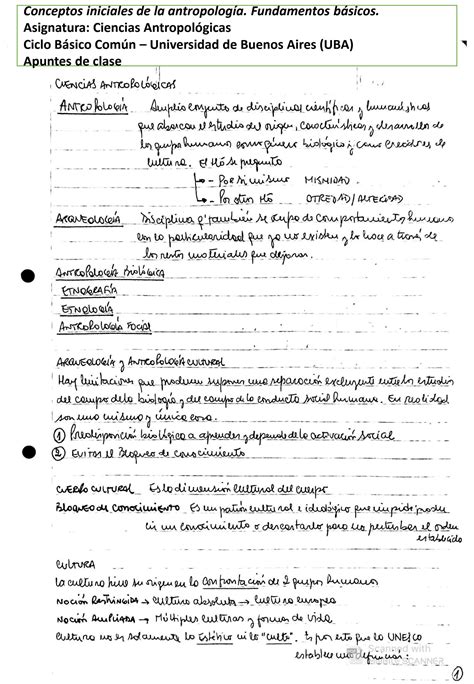 Conceptos iniciales de la antropología. Fundamentos básicos.
Asignatura: Ciencias Antropológicas
Ciclo Básico Común – Universidad de Buenos Aires (UBA)
Apuntes de clase
CIENCIAS ANTROPOLÓGICAS
ANTROPOLOGÍA Amplio conjunto de disciplinas científicas y humanísticas
que abarcan el estudio del origen, características y desarrollo de
los grupos humanos como género biológico y como creadores de
cultura. El Ho se pregunta
Por sí mismo MISMIDAD
Por otro Ho OTREDAD/ALTERIDAD
ARQUEOLOGÍA Disciplina q' también se ocupa de comportamientos humanos
con la particularidad que ya no existen y lo hace a través de
los restos materiales que dejaron.
ANTROPOLOGÍA BIOLÓGICA
ETNOGRAFÍA
ETNOLOGÍA
ANTROPOLOGÍA SOCIAL
ARQUEOLOGÍA y ANTROPOLOGÍA CULTURAL
Hay limitaciones que producen suponer una separación excluyente entre los estudios
del campo de la biología y del campo de la conducta social humana. En realidad
son uno mismo y única cosa.
① Predisposición biológica a aprender y depende de la activación social
② Evitar el Bloqueo de Conocimiento
CUERPO CULTURAL Es la dimensión cultural del cuerpo
BLOQUEO DE CONOCIMIENTO Es un patrón cultural e ideológico que impide produ
cir un conocimiento o descartarlo para no perturbar el orden
establecido
CULTURA
La cultura tiene su origen en la confrontación de 2 grupos humanos
NOCIÓN RESTRINGIDA → Cultura absoluta → Cultura europea
NOCIÓN AMPLIADA → Múltiples culturas y formas de vida
Cultura no es solamente lo estético ni lo "culto". Es por esto que la UNESCO
establece una definición:
Scanned with
①